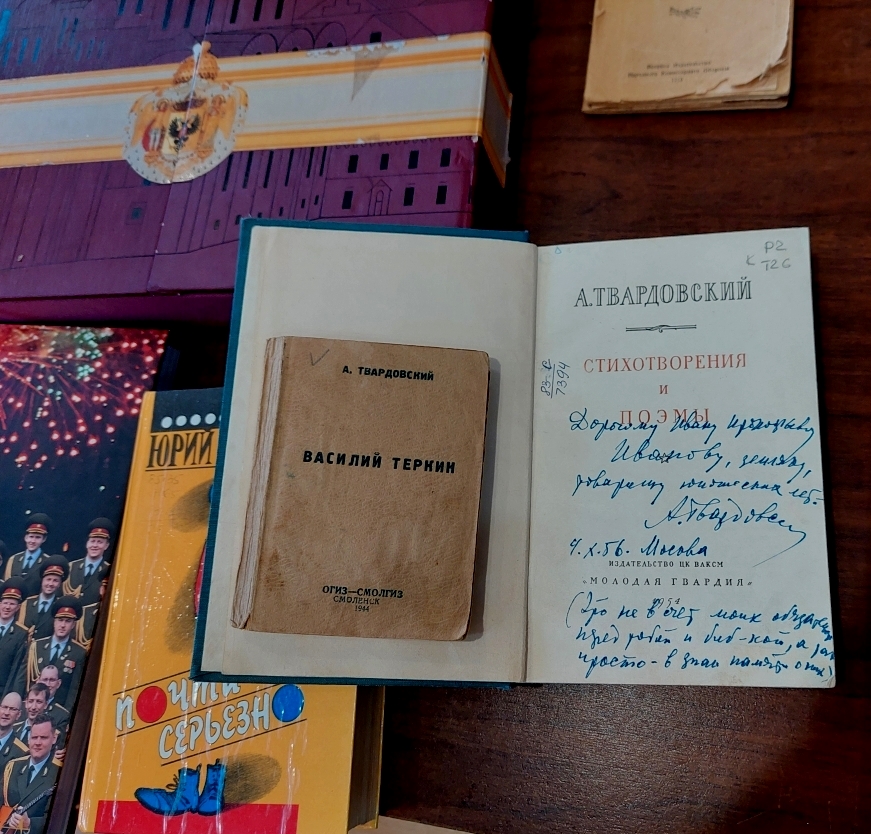 Р2
К Т26
А.ТВАРДОВСКИЙ
СТИХОТВОРЕНИЯ
И
ПОЭМЫ
83-
7394
Дорогому Ивану
Иванову, земляку,
товарищу юношеских лет.
А.Твардовский
4.X.56. Москва
ИЗДАТЕЛЬСТВО ЦК ВЛКСМ
«МОЛОДАЯ ГВАРДИЯ»
1954
(Это не в счет моих
перед тобой и биб-кой, а
просто - в знак памяти о них)
А. ТВАРДОВСКИЙ
ВАСИЛИЙ ТЕРКИН
ОГИЗ—СМОЛГИЗ
СМОЛЕНСК
1944
ЮРИЙ
ПОЧТИ
СЕРЬЕЗНО